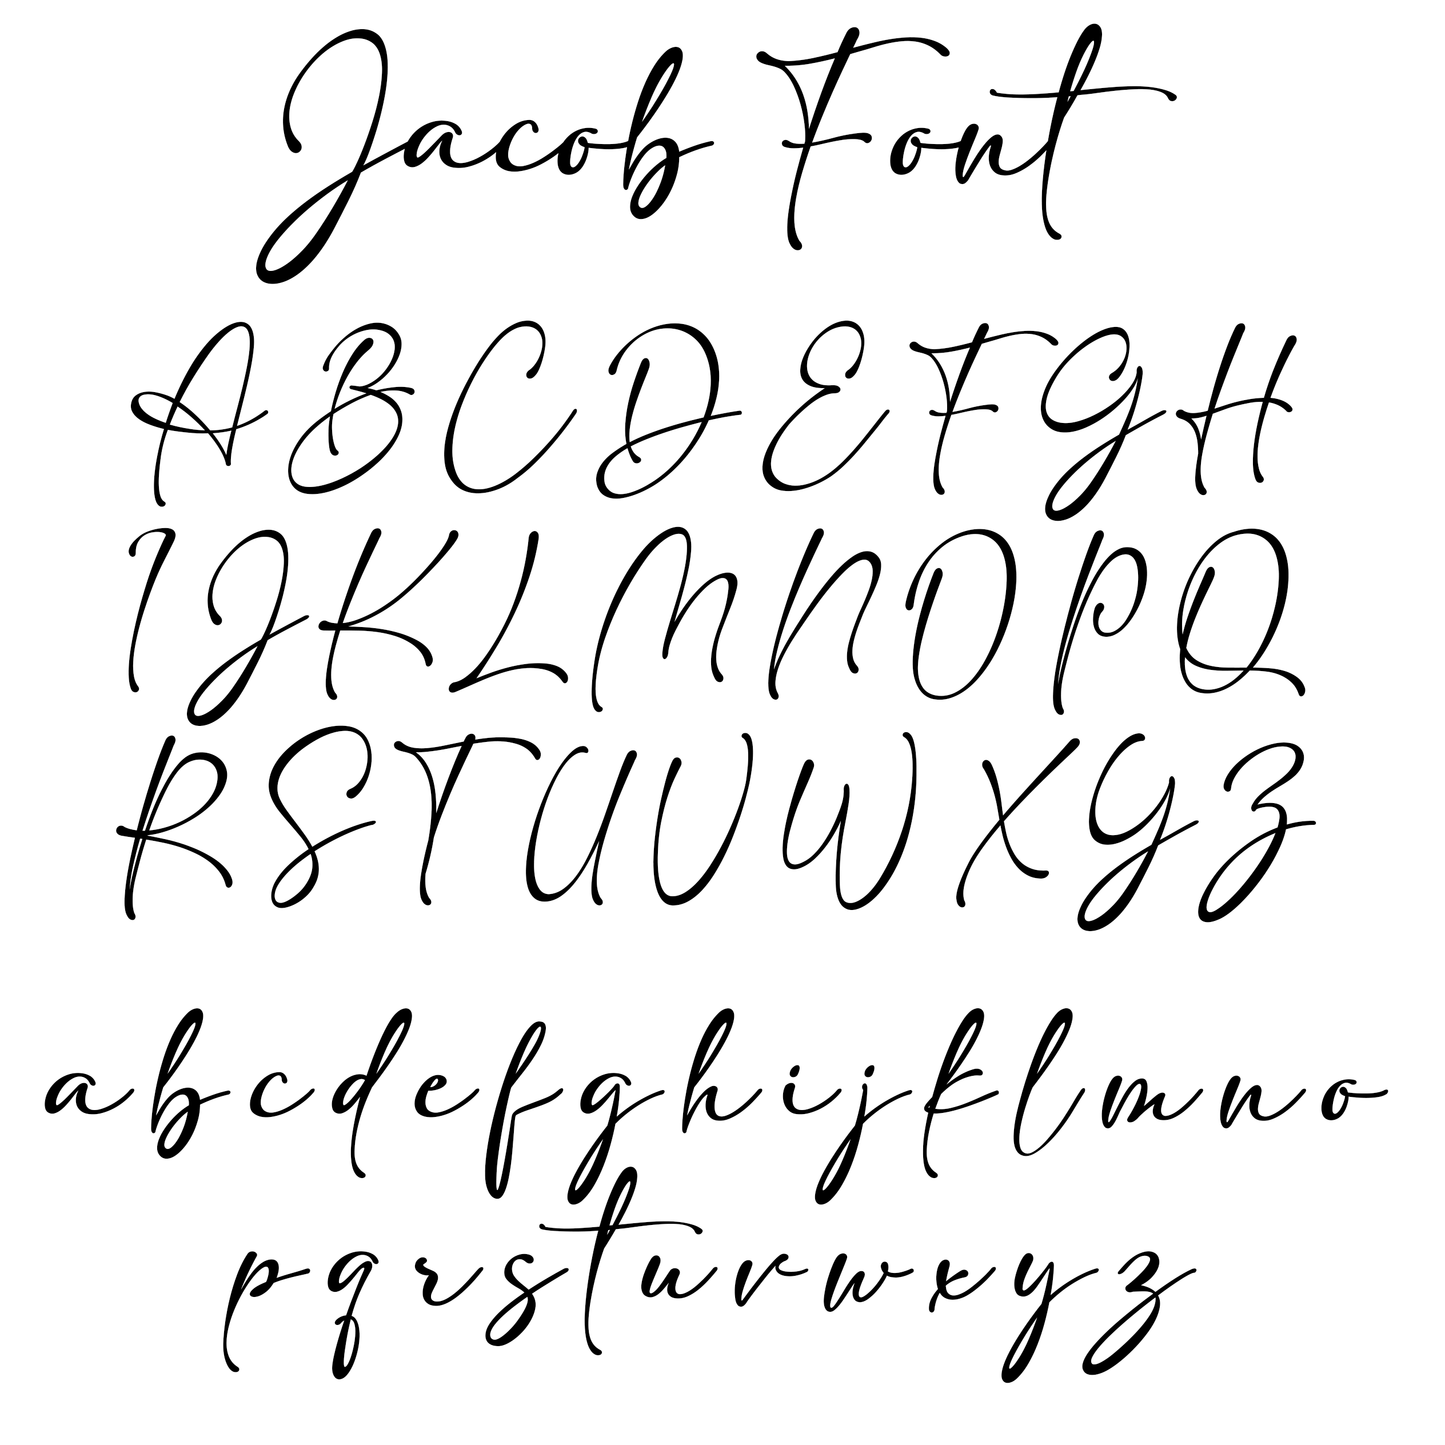 Jacob Font
A B C D E F G H
I J K L M N O P Q
R S T U V W X Y Z
a b c d e f g h i j k l m n o
p q r s t u v w x y z